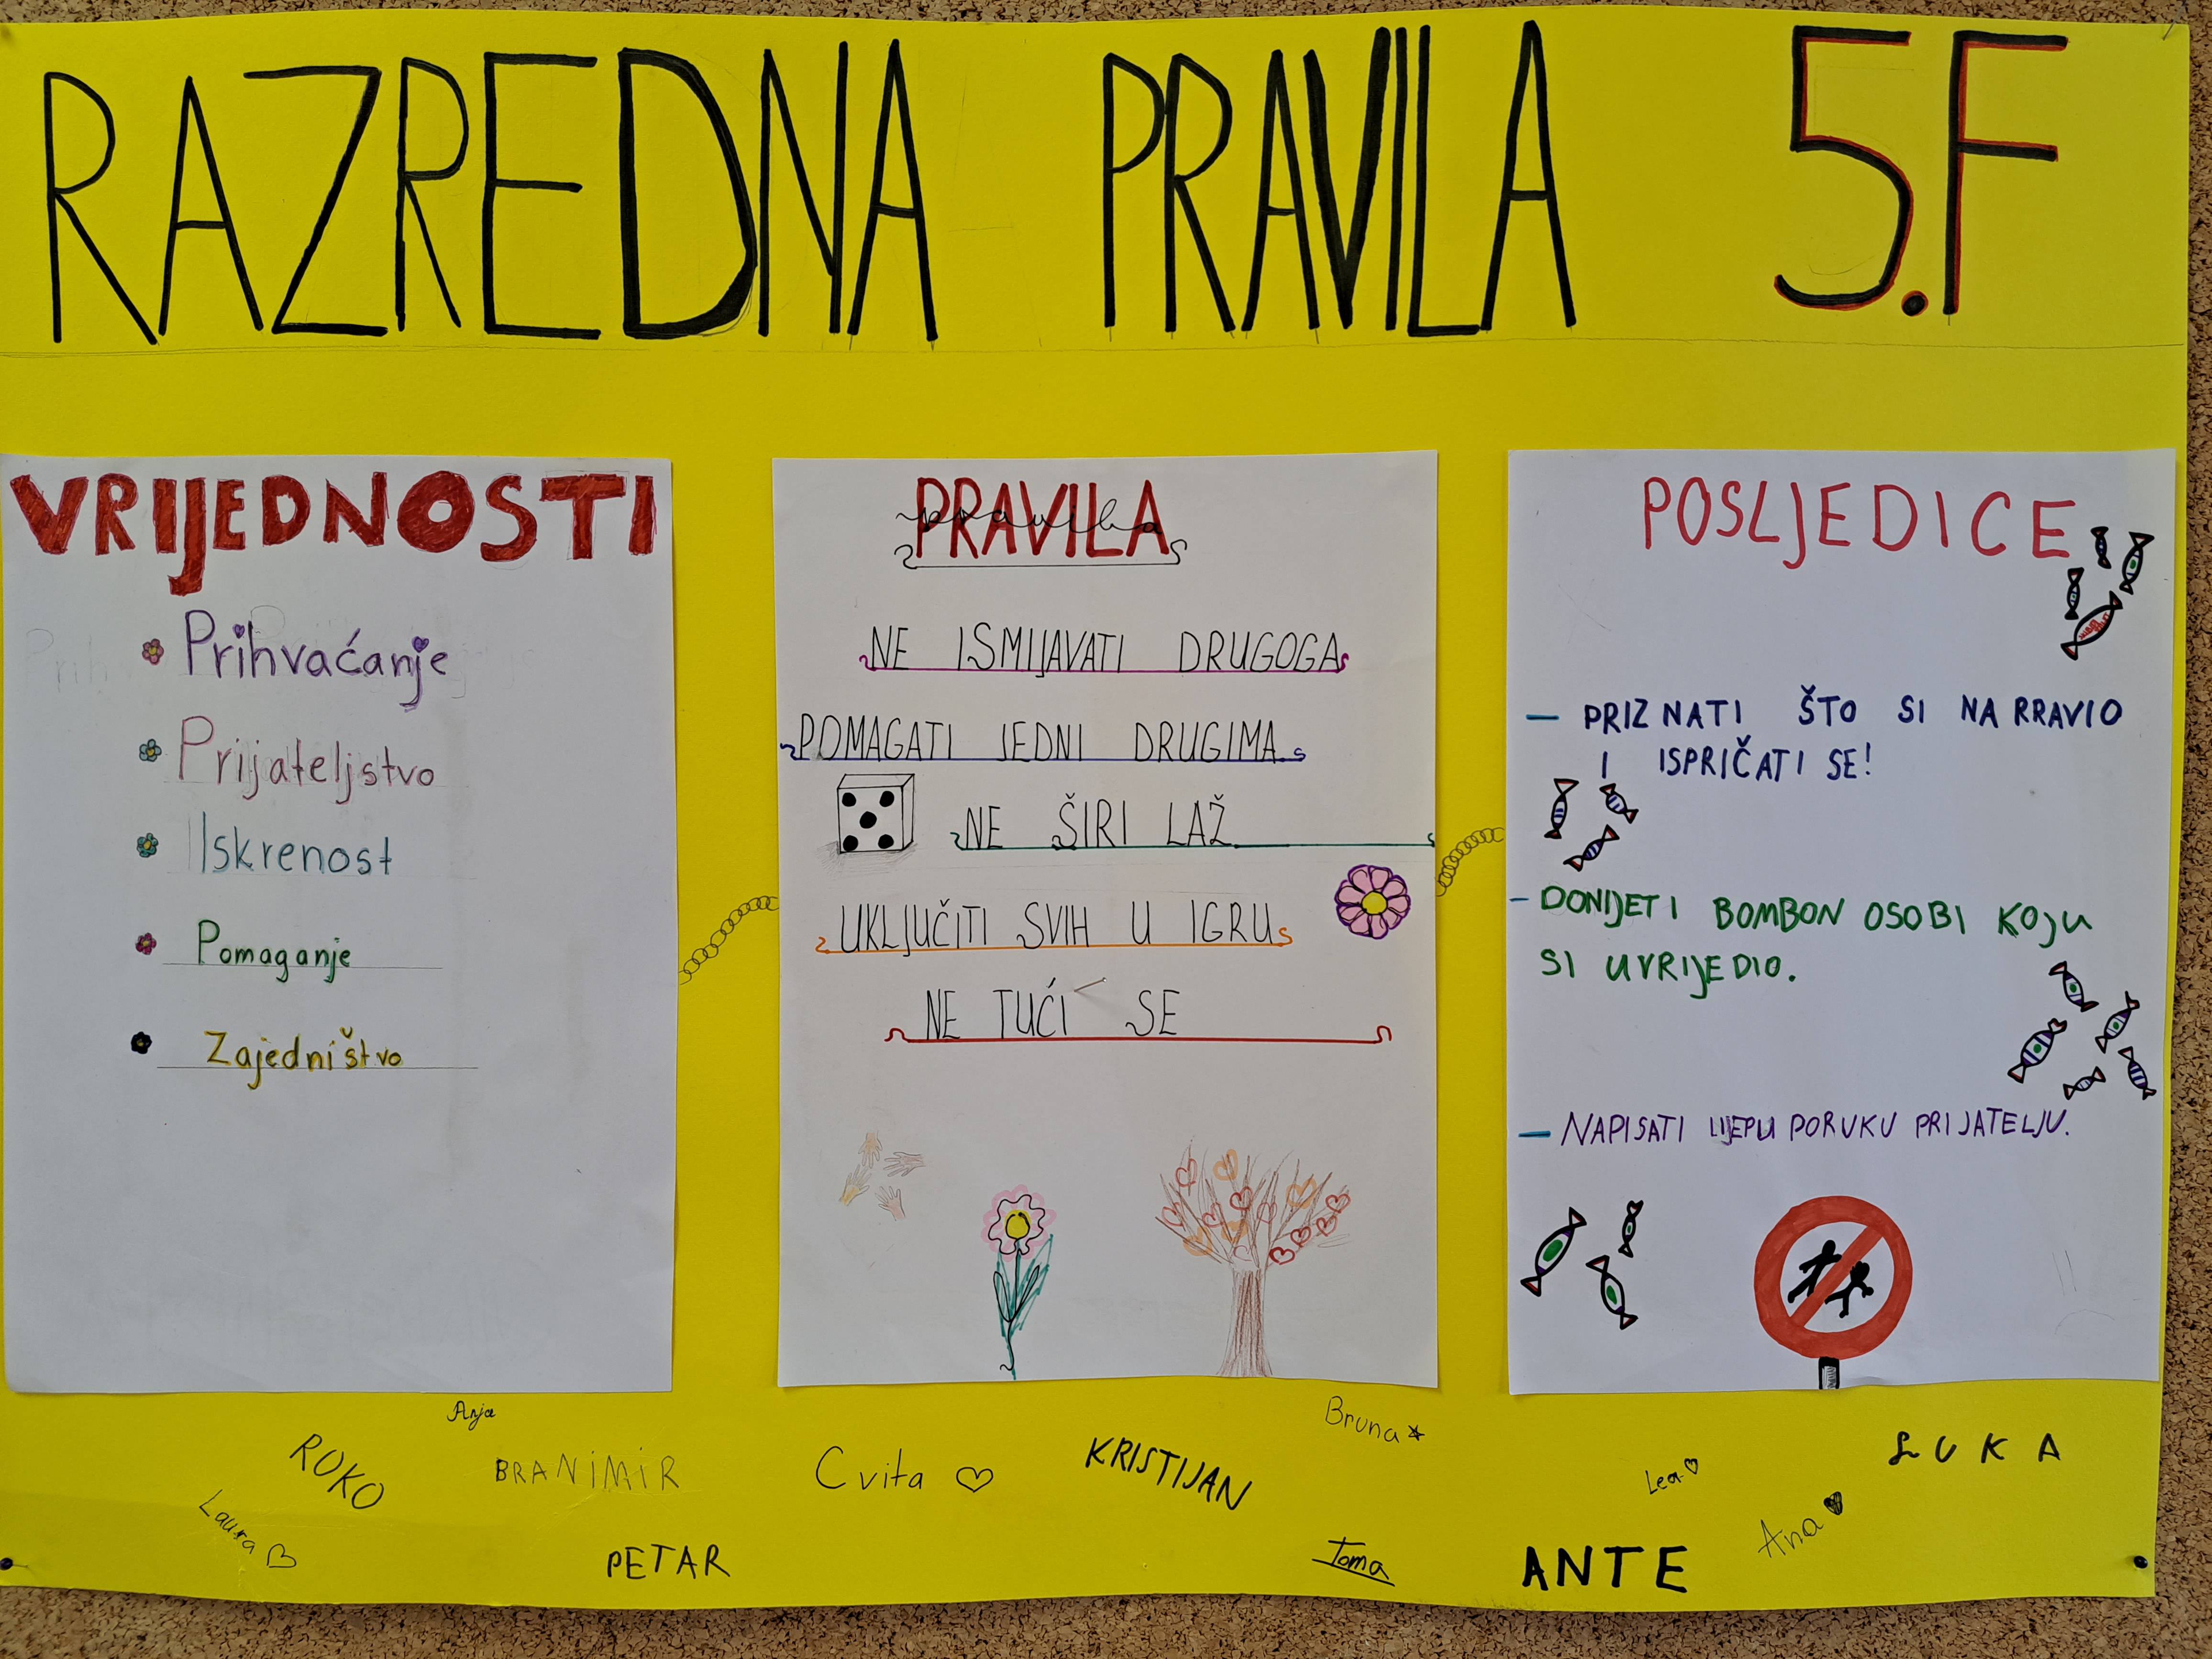 RAZREDNA PRAVILA 5.F
VRIJEDNOSTI
Prihvaćanje
Prijateljstvo
Iskrenost
Pomaganje
Zajedništvo
PRAVILA
NE ISMIJAVATI DRUGOGA
POMAGATI JEDNI DRUGIMA
NE ŠIRI LAŽ
UKLJUČITI SVIH U IGRU
NE TUĆI SE
POSLJEDICE
- PRIZNATI ŠTO SI NARRAVIO
I ISPRIČATI SE!
- DONIJETI BOMBON OSOBI KOJU
SI UVRIJEDIO.
- NAPISATI LIJEPU PORUKU PRIJATELJU.
Anja
Bruna
ROKO
BRANIMIR
Cvita
KRISTIJAN
Lea
LUKA
Laura
PETAR
Toma
ANTE
Ana